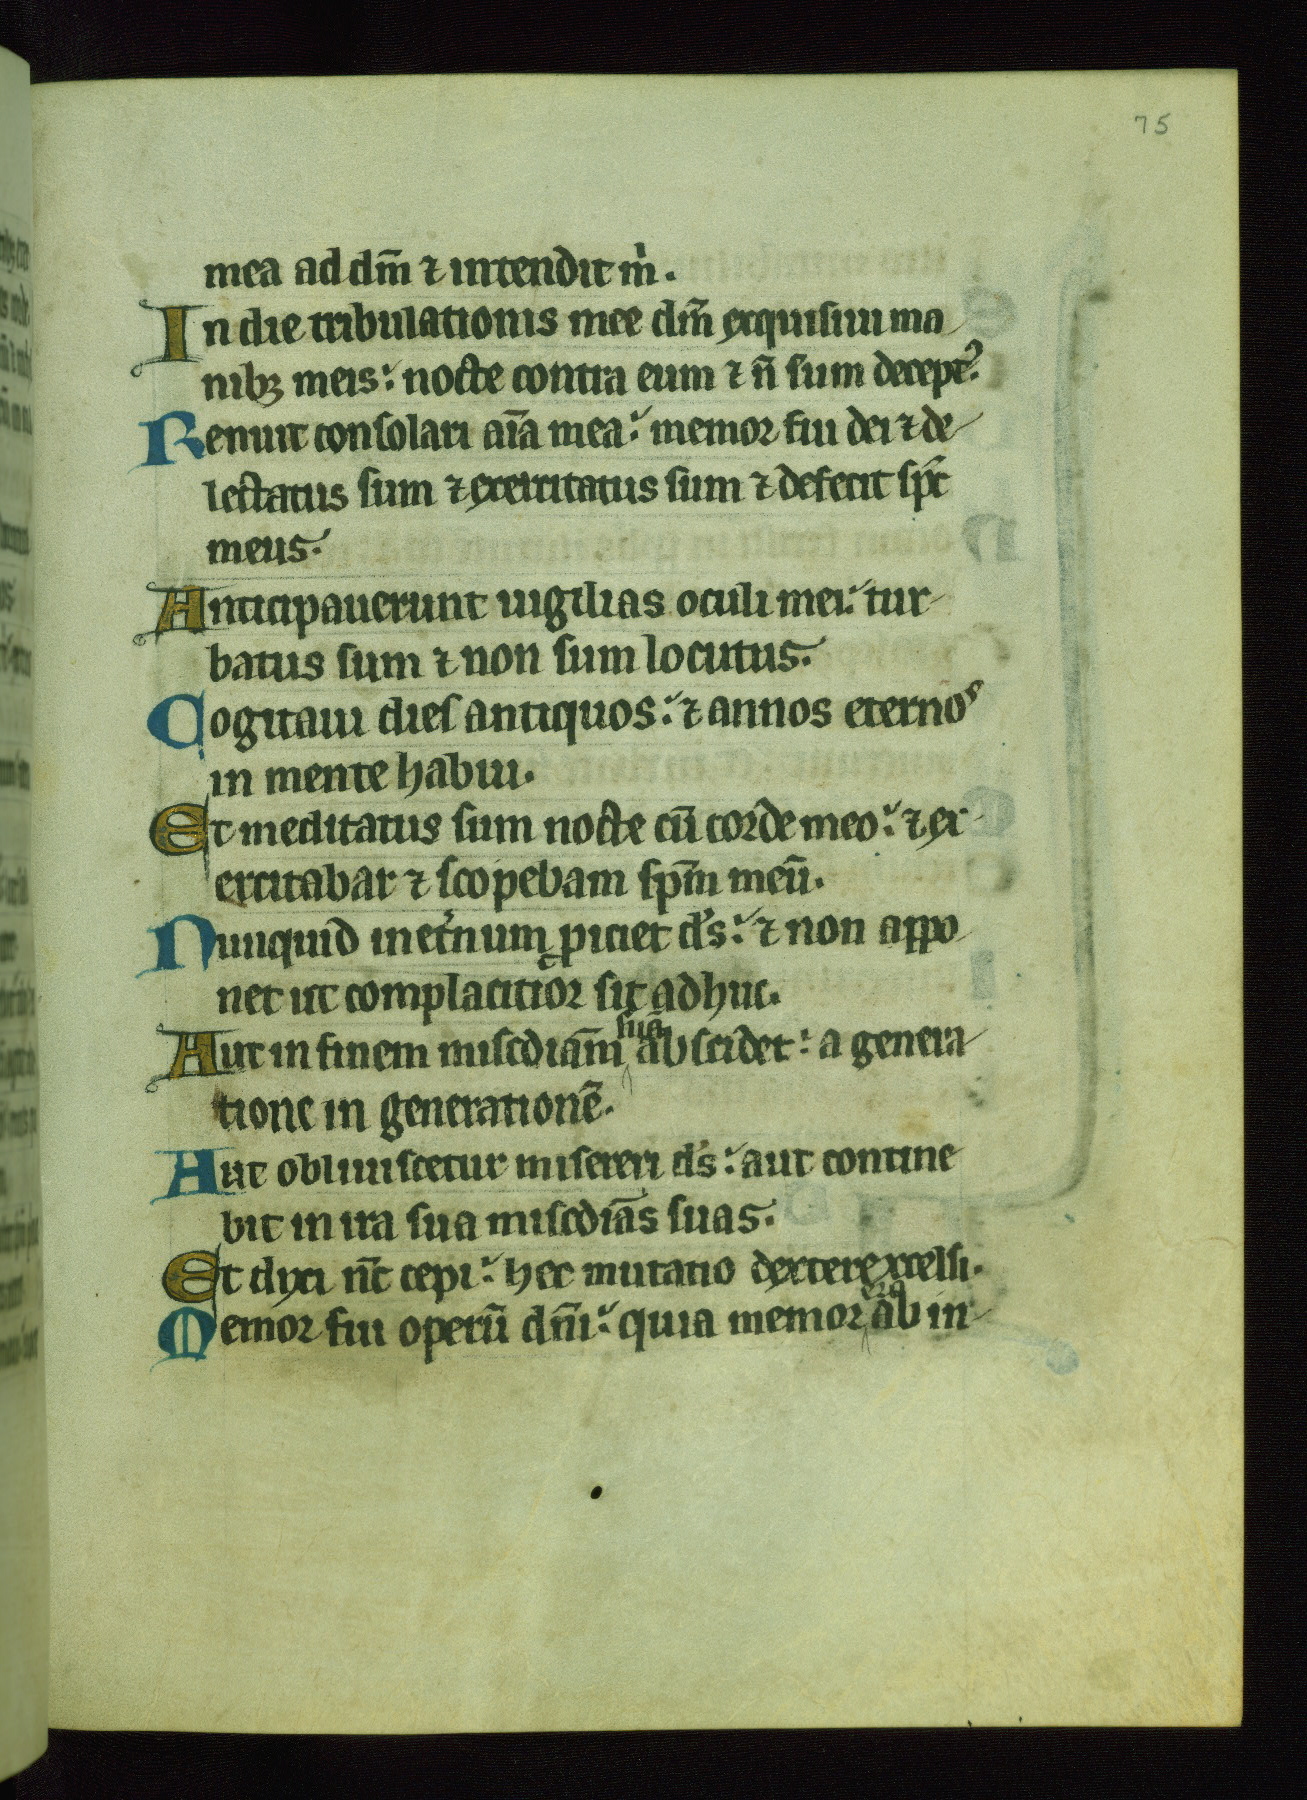 75
mea ad dm̄ ⁊ intendit m̍.
In die tribulationis mee dm̄ exquisiui ma
nibꝫ meis: nocte contra eum ⁊ n̄ sum decept᷒.
Renuit consolari aīa mea: memor fui dei ⁊ de
lectatus sum ⁊ exercitatus sum ⁊ defecit spc̄
meus.
Anticipauerunt uigilias oculi mei: tur
batus sum ⁊ non sum locutus.
Cogitaui dies antiquos: ⁊ annos eternos
in mente habui.
Et meditatus sum nocte cū corde meo: ⁊ ex
ercitabar ⁊ scopebam spm̄ meū.
Nunquid in et̍num ꝓiciet d̄s: ⁊ non appo
net ut complacitior sit adhuc.
Aut in finem misc̄diam suā abscidet: a genera
tione in generationē.
Aut obliuiscetur misereri d̄s: aut contine
bit in ira sua misc̄dias suas.
Et dixi nc̄ cepi: hec mutatio dextere excelsi.
Memor fui operū dn̄i: quia memor ero ab in